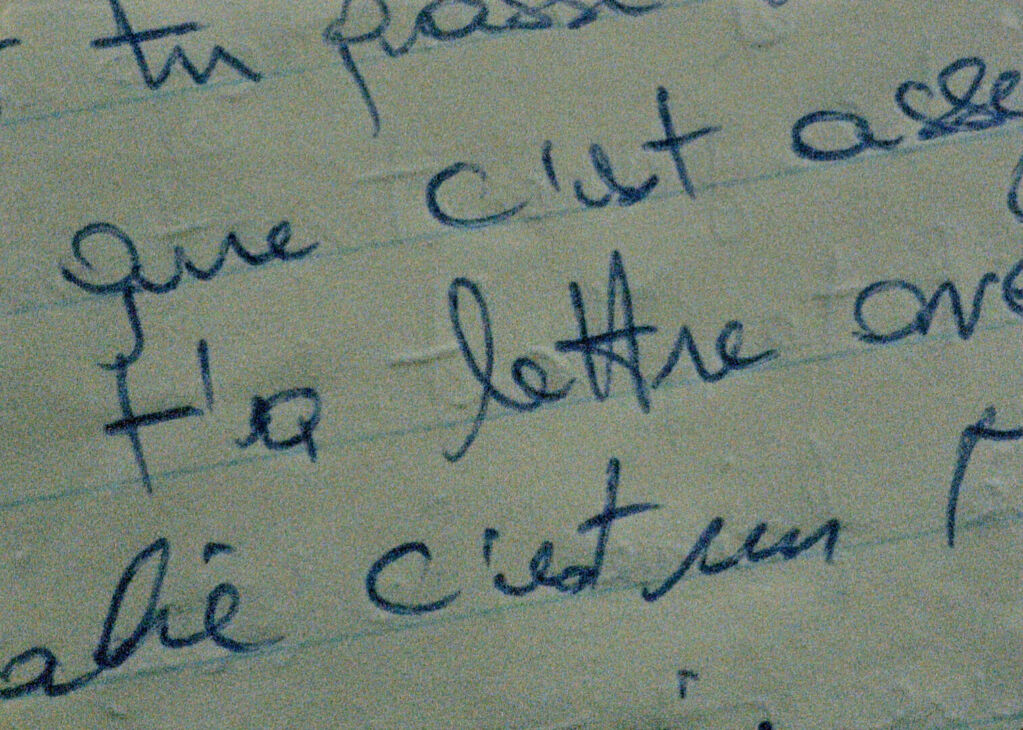 tu passe
que c'est asse
t'a lettre ave
alie c'est un